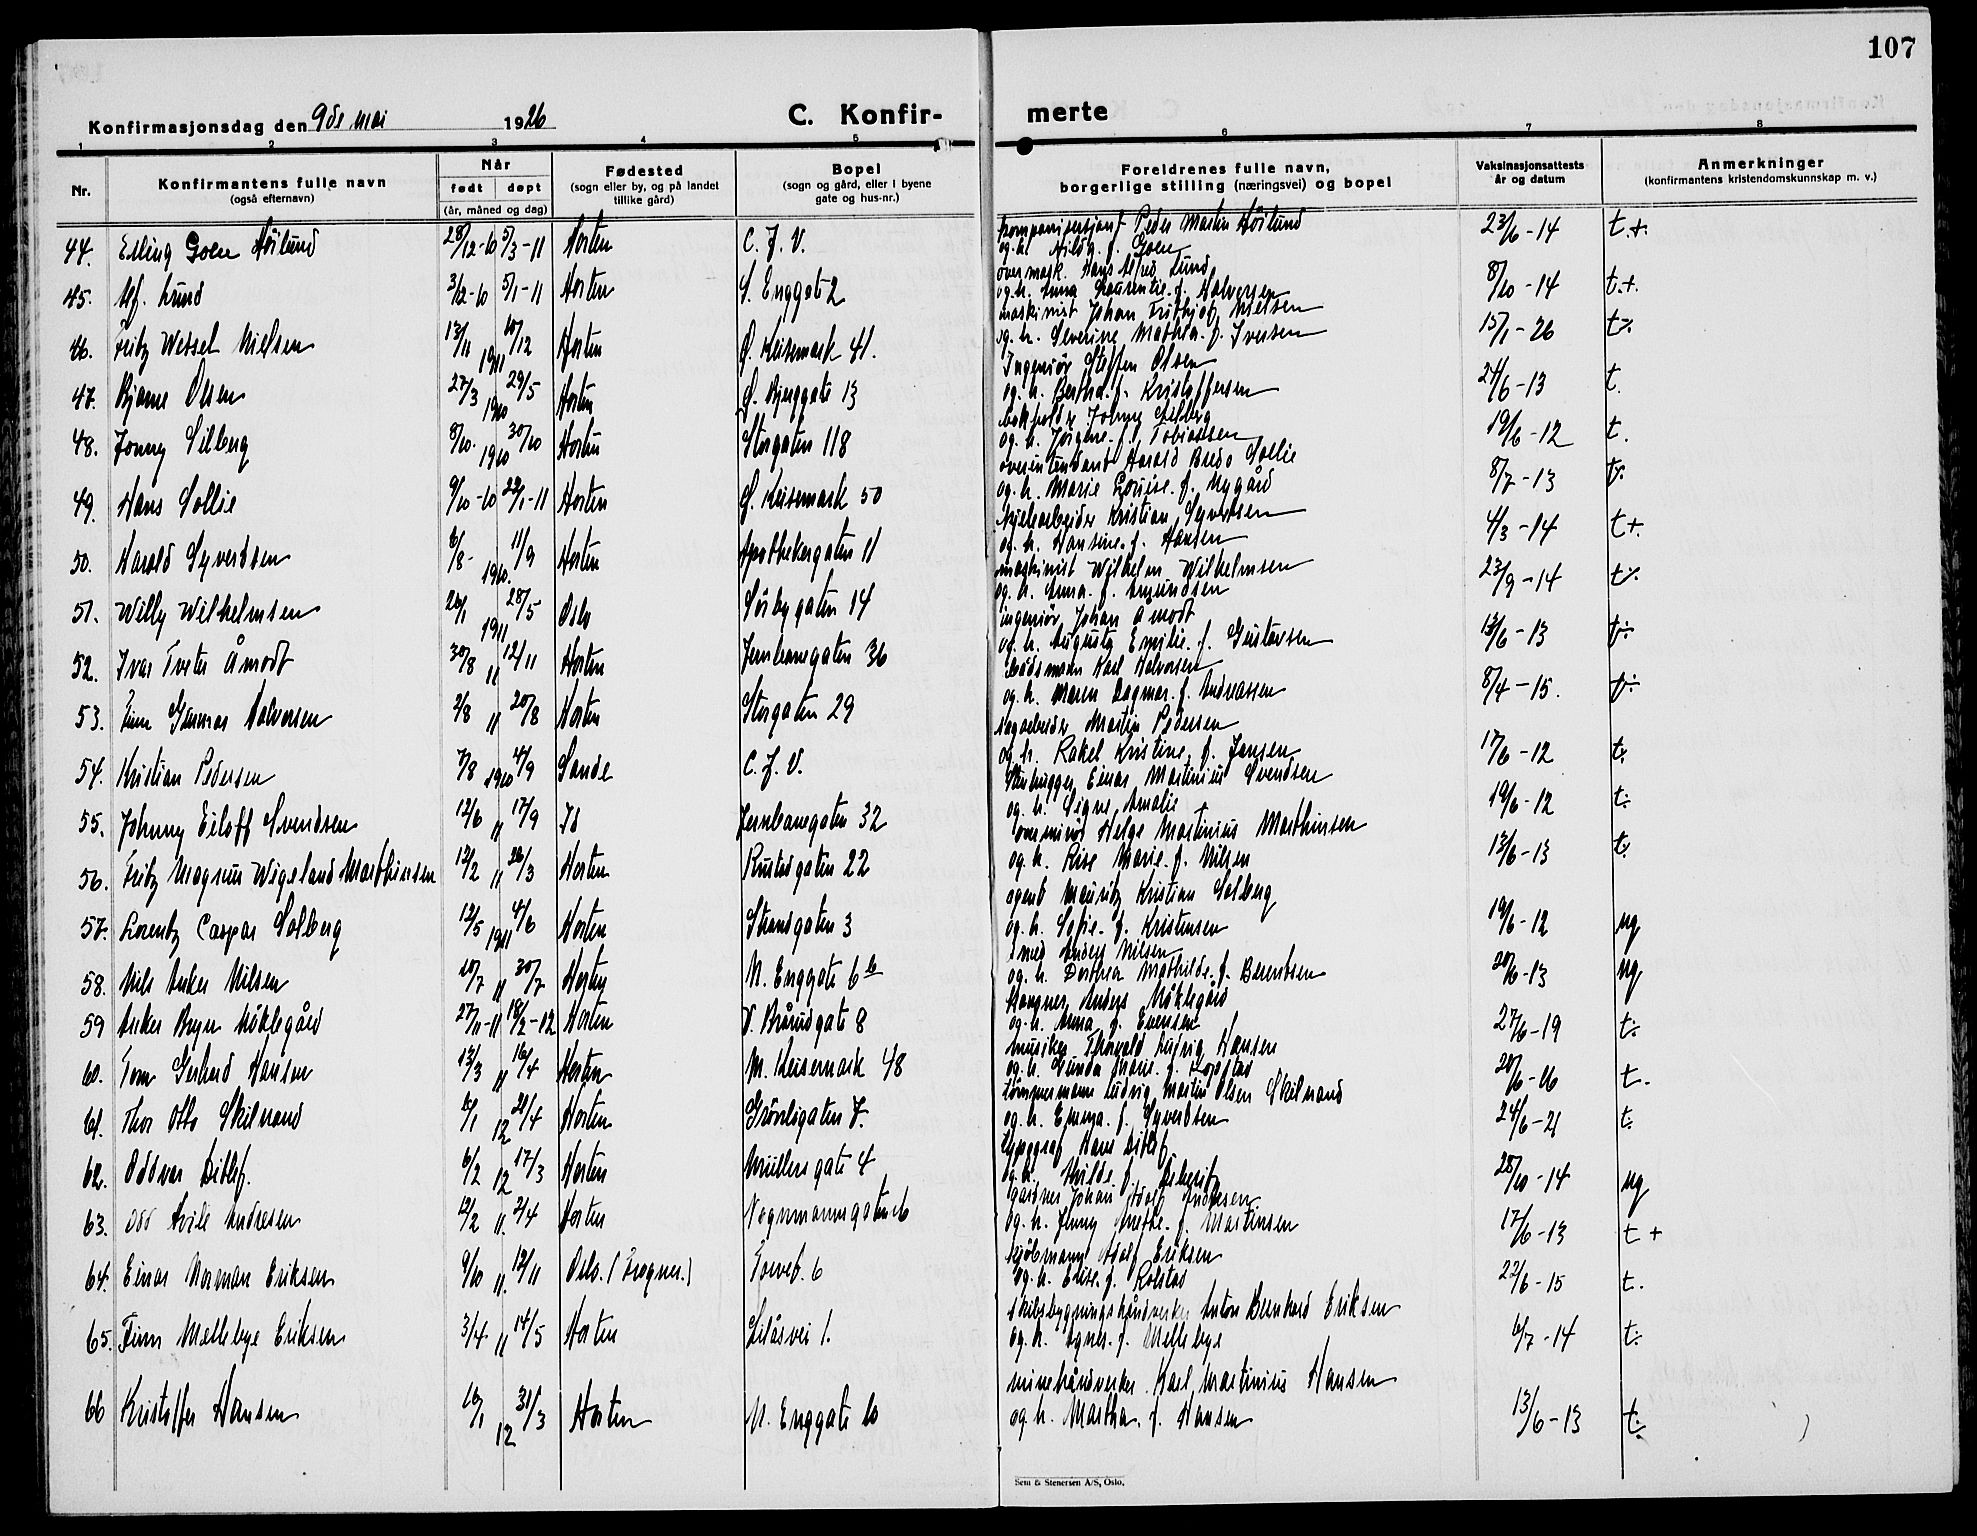 107
Konfirmasjonsdag den 9de mai 1926 C. Konfir- merte
1 2 3 4 5 6 7 8
Nr. Konfirmantens fulle navn (også efternavn) Når født døpt (år, måned og dag) Fødested (sogn eller by, og på landet tillike gård) Bopel (sogn og gård, eller i byene gate og hus-nr.) Foreldrenes fulle navn, borgerlige stilling (næringsvei) og bopel Vaksinasjonsattests år og datum Anmerkninger (konfirmantens kristendomskunnskap m. v.)
44. Erling Goen Høilund 28/12-10 5/3-11 Horten C. J. V. Peder Martin Høilund og h. f. Goen 23/6-14 t.+.
45. Alf. Lund 3/12-10 5/1-11 Horten S. Enggate 2 overmask. Hans Alfred Lund og h. Anna Laurentie f. Halvorsen 8/10-14 t.+.
46. Fritz Wessel Nielsen 13/11 1911 10/12 Horten Ø. Keisemark 41. maskinist Johan Fridtjof Nielsen og h. Severine Mathea. f. Iversen 15/1-26
47. Bjarne Olsen 27/3 1910 29/5 Horten Ø. Bjerggate 13 Ingeniør Steffen Olsen og h. Bertha f. Kristoffersen 24/6-13 t.
48. Jonny Silberg 8/10. 1910 30/10 Horten Storgaten 118 Johnny Silberg og h. Jørgine f. Tobiassen 19/6-12 t.
49. Hans Sollie 9/10-10 22/1-11 Horten Ø. Keisemark 50 overintendant Harald Bredo Sollie og h. Marie Louise. f. Nygård 8/7-13
50. Harald Syvertsen 6/8- 1910. 11/9 Horten Apothekergaten 11 Kristian Syvertsen og h. Hansine. f. Hansen 4/3-14 t+.
51. Willy Wilhelmsen 26/1 1911 28/5 Oslo Sørbygaten 14 maskinist Wilhelm Wilhelmsen og h. Anna. f. Amundsen 23/9-14
52. Ivar Tveter Åmodt 30/8 11 12/11 Horten Jernbanegaten 36 ingeniør Johan Åmodt og h. Augusta Emilie. f. Gustavsen 13/6-13
53. Gunnar Halvorsen 2/8 11 20/8 Horten Storgaten 29 Karl Halvorsen og h. Maren Dagmar. f. Andreassen 8/4-15.
54. Kristian Pedersen 7/8 1910 4/9 Sande C. J. V. Martin Pedersen og h. Rakel Kristine. f. Jansen 17/6-12 t.
55. Johnny Eiloff Svendsen 12/6 11 17/9 Id Jernbanegaten 32 Stenhugger Einar Martinius Svendsen og h. Signe Amalie + 19/6-12 t.
56. Fritz Magnus Wigeland Marthinsen 12/2 11 26/3 Horten Rustadgaten 22 overminør Helge Martinius Marthinsen og h. Rise Marie. f. Nilsen 13/6-13 t.
57. Lorentz Caspar Solberg 12/5 1911 4/6 Horten Strandgaten 3 agent Mauritz Kristian Solberg og h. Sofie. f. Kristensen 19/6-12 mg
58. Nils Anker Nilsen 10/7 11 30/7 Horten N. Enggate 6b smed Anders Nilsen og h. Dorthea Mathilde. f. Berentsen 20/6-13 mg
59 Anker Bryn Møklegård 27/11-11 18/2-12 Horten V. Brårudgate 8 Anders Møklegård og h. Anna f. Evensen 27/6-19 t.
60. Tom Gerhard Hansen 13/3 11 16/4 Horten M. Keisemark 48 musiker Thorvald Ludvig Hansen og h. Gunda Marie. f. 20/6-16 t.
61. Thor Otto Skilnand 6/1 12 21/4 Horten Grønligaten 7. tømmermann Ludvig Martin Olsen Skilnand og h. Emma. f. Syvertsen 24/6-21 t.
62. Oddvar Ditlef. 6/2 12 17/3 Horten Müllersgate 4 typograf Hans Ditlef og h. Hilde. f. 28/10-14 mg
63. Odd Andresen 12/2 11. 2/4 Horten Vognmannsgaten 16 gartner Johan Adolf Andresen og h. Jenny Anette. f. Martinsen 17/6-13 t +
64. Einar Norman Eriksen 9/10 11. 12/11 Oslo. (Frogner.) Torvet. 6 kjøbmann Adolf Eriksen og h. Elise. f. Rolstad 22/6-15 t.
65. Finn Mellebye Eriksen 3/4 11 14/5 Horten Liåsvei 1. skibsbygningshåndverker Anton Bernhard Eriksen og h. Agnes. f. Mellebye 6/7-14 t.
66 Kristoffer Hansen 10/1 12 31/3 Horten N. Enggate 10 minehåndverker. Karl Martinius Hansen og h. Martha. f. Hansen 13/6-13 t.
Sem & Stenersen A/S, Oslo.